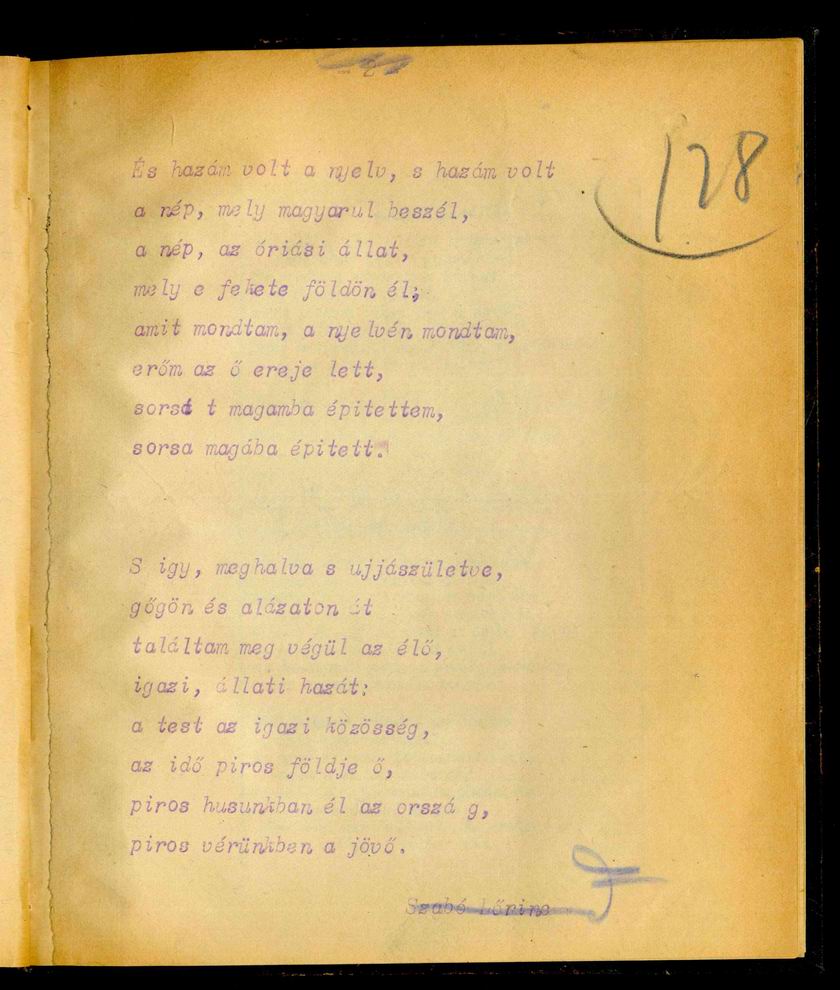 - 2 -
128
És hazám volt a nyelv, s hazám volt
a nép, mely magyarul beszél,
a nép, az óriási állat,
mely e fekete földön él;
amit mondtam, a nyelvén mondtam,
erőm az ő ereje lett,
sorsá t magamba épitettem,
sorsa magába épitett.
S igy, meghalva s ujjászületve,
gőgön és alázaton át
találtam meg végül az élő,
igazi, állati hazát:
a test az igazi közösség,
az idő piros földje ő,
piros husunkban él az orszá g,
piros vérünkben a jövő.
Szabó Lőrinc